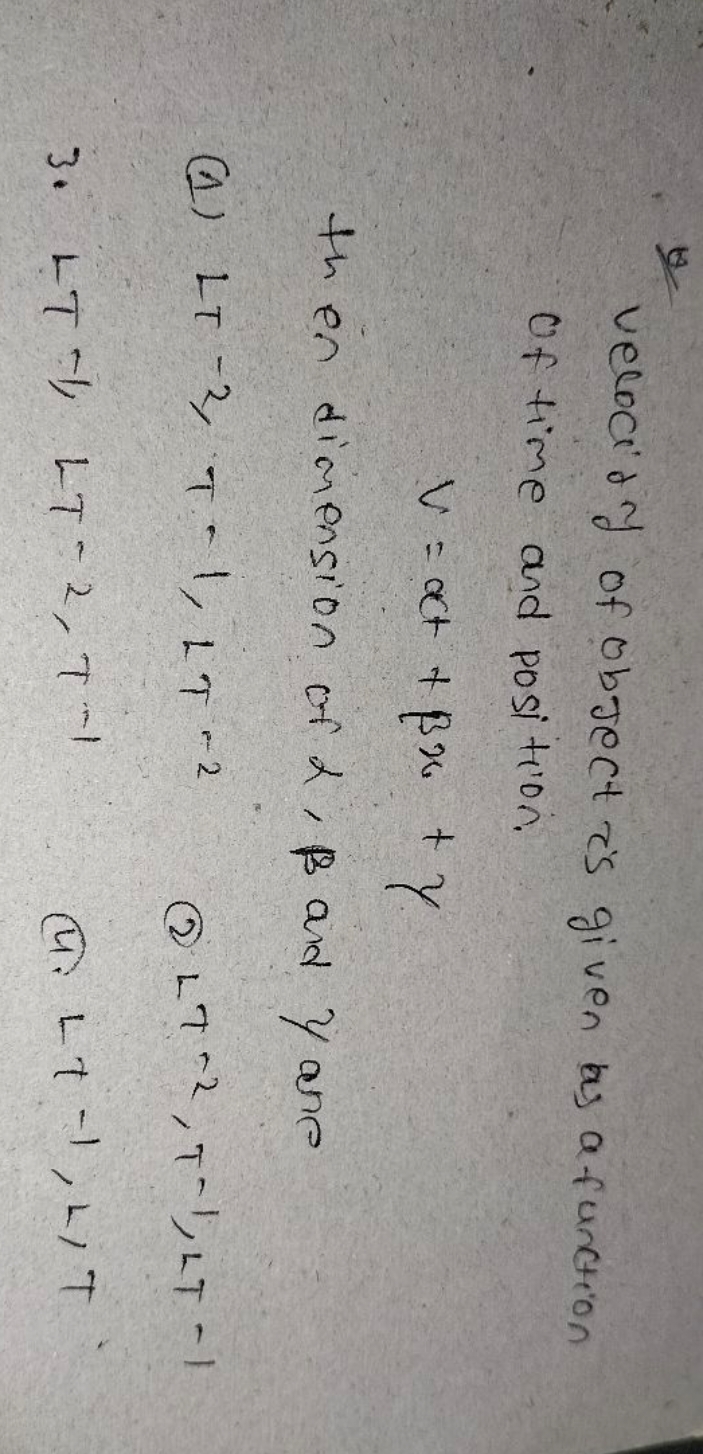 Q
velocity of object is given as a function
of time and position.
V = αt + βx + γ
then dimension of α, β and γ are
(1) LT-2, T-1, LT-2 (2) LT-2, T-1, LT-1
3. LT-1, LT-2, T-1 (4). LT-1, L, T